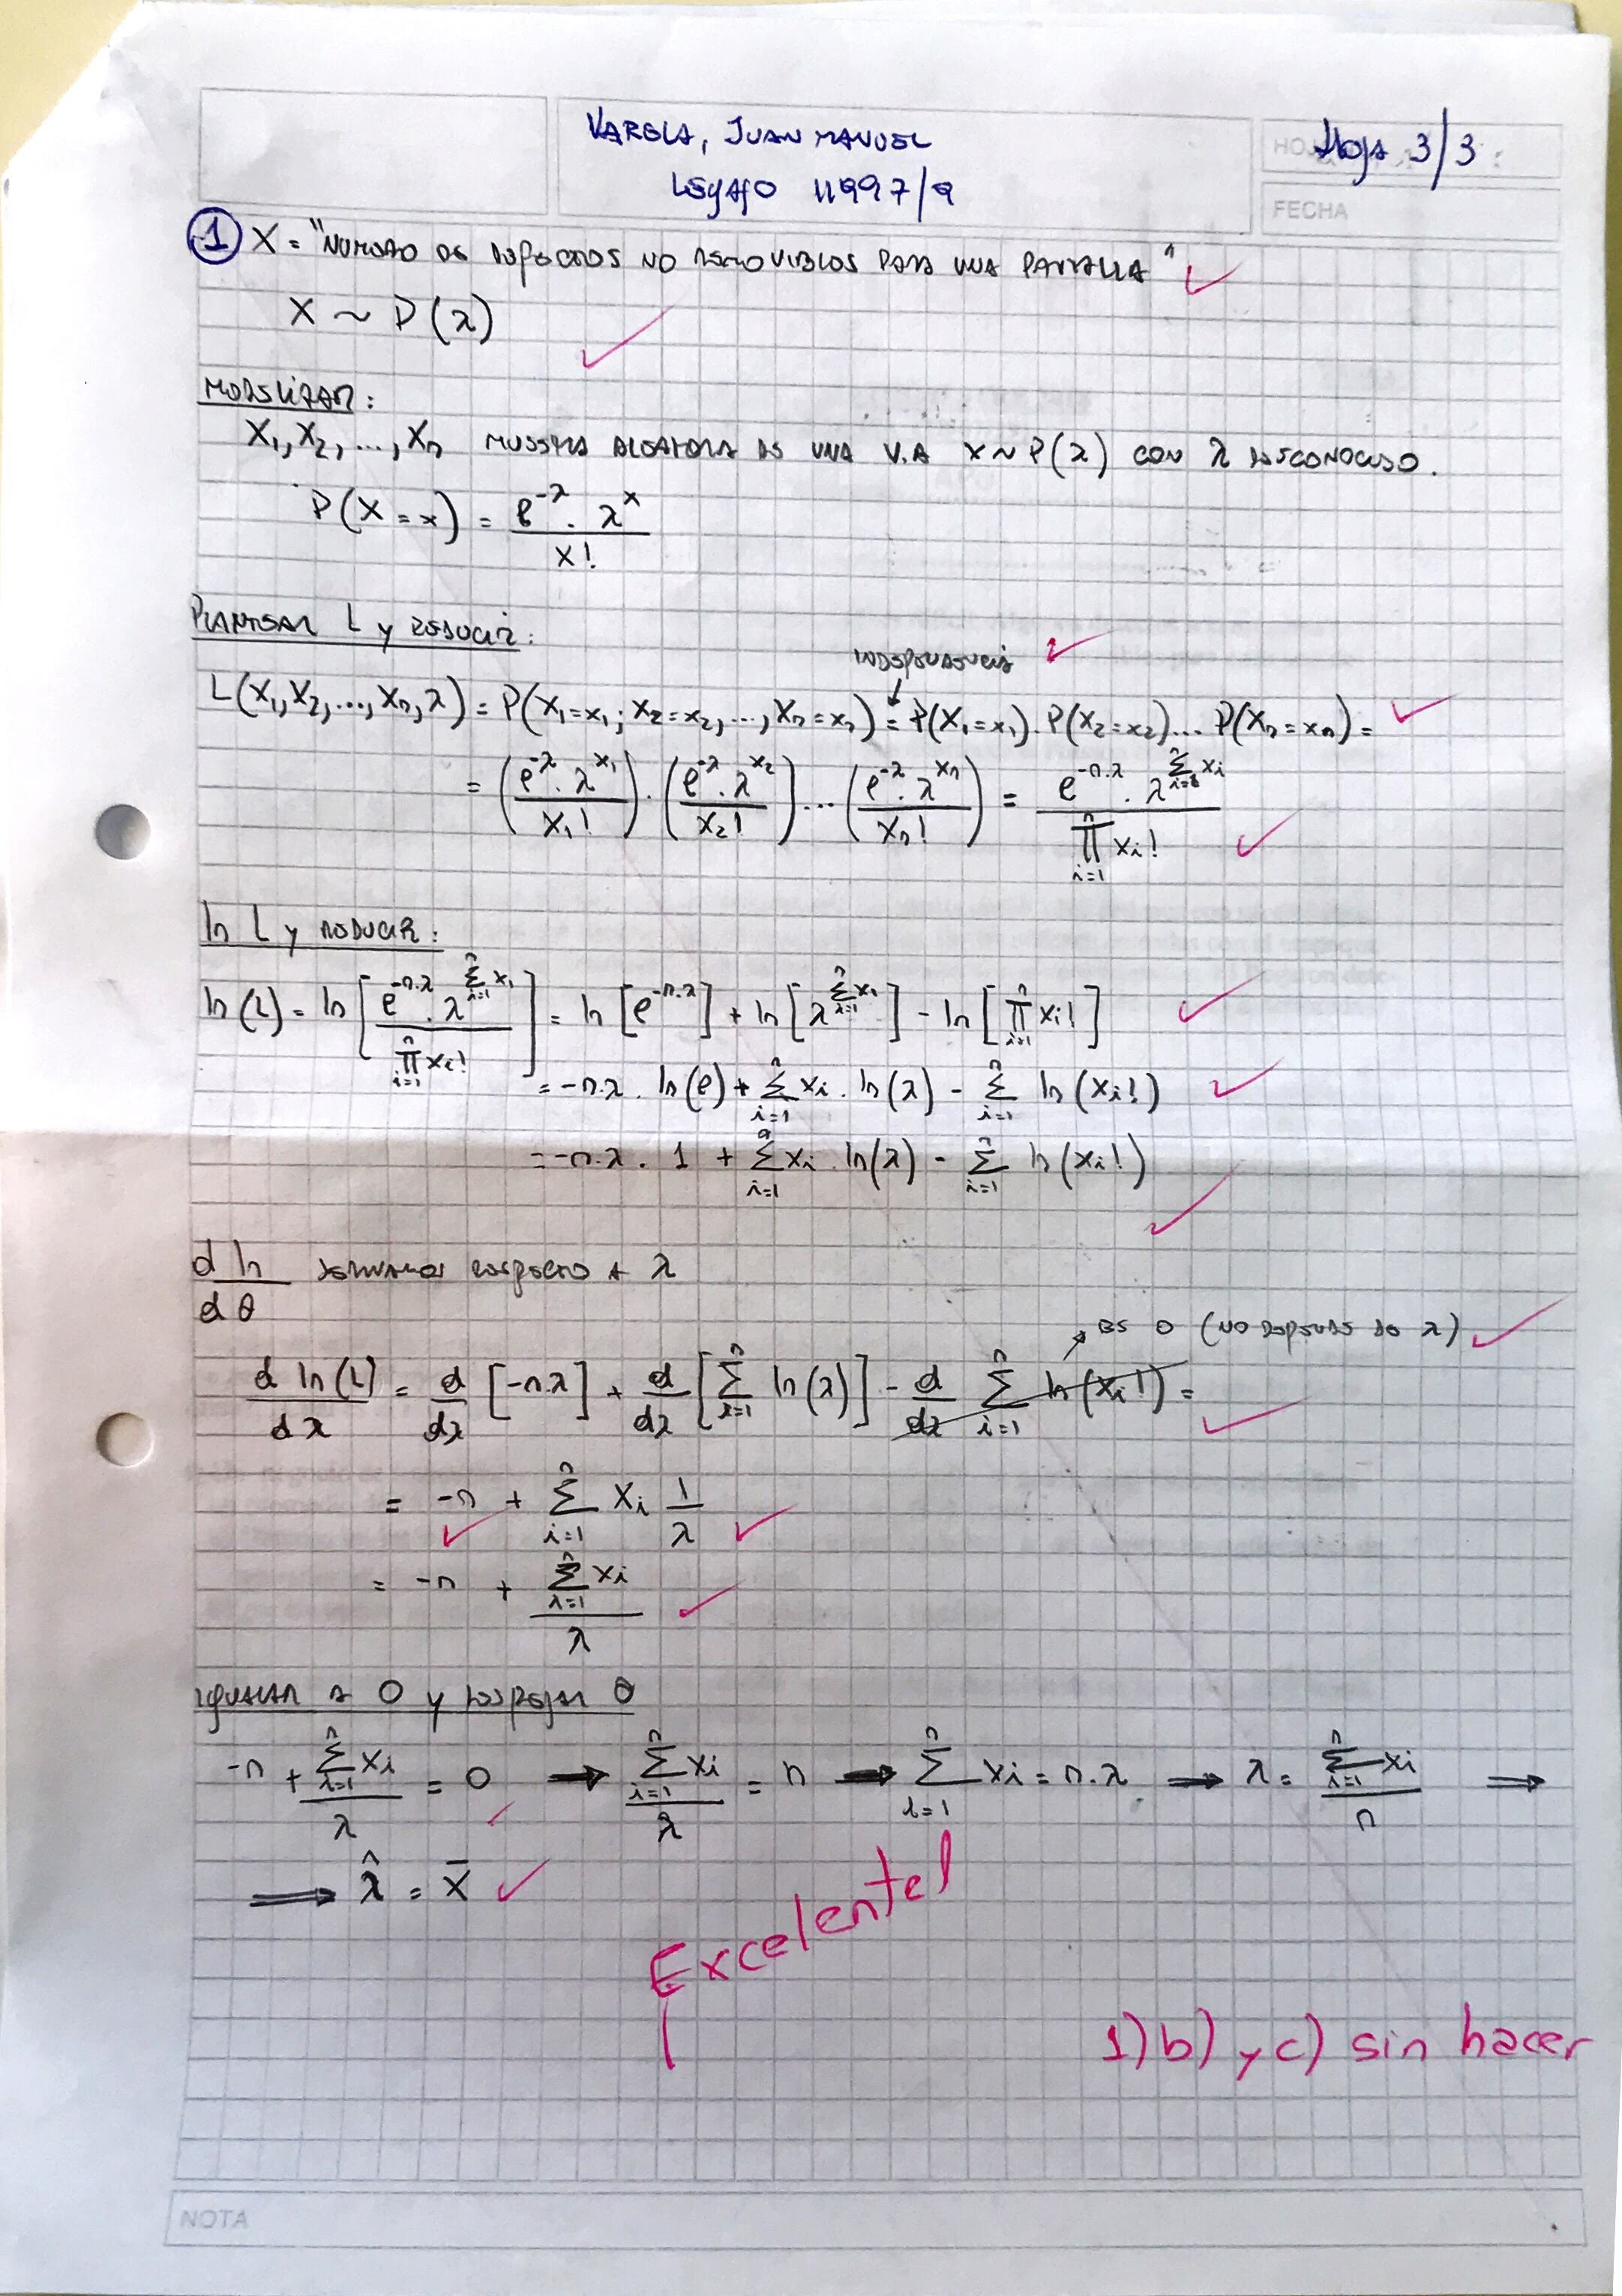 VARELA, JUAN MANUEL
HOJA Hoja 3/3
Legajo 11997/9
FECHA
① X = "NUMERO DE DEFECTOS NO REMOVIBLES PARA UNA PANTALLA"
X ~ P(λ)
MODELIZAR:
X₁, X₂, ..., Xn MUESTRA ALEATORIA DE UNA V.A X ~ P(λ) CON λ DESCONOCIDO.
P(X = x) = e^(-λ) . λ^x / x!
PLANTEAR L y REDUCIR:
INDEPENDENCIA
L(X₁, X₂, ..., Xn, λ) = P(X₁ = x₁; X₂ = x₂, ..., Xn = xn) = P(X₁ = x₁) . P(X₂ = x₂) ... P(Xn = xn) =
= (e^(-λ) . λ^(x₁) / x₁!) . (e^(-λ) . λ^(x₂) / x₂!) ... (e^(-λ) . λ^(xn) / xn!) = e^(-n.λ) . λ^(Σ_{i=1}^n xi) / Π_{i=1}^n xi!
ln L y REDUCIR:
ln(L) = ln[e^(-n.λ) . λ^(Σ_{i=1}^n xi) / Π_{i=1}^n xi!] = ln[e^(-n.λ)] + ln[λ^(Σ_{i=1}^n xi)] - ln[Π_{i=1}^n xi!]
= -n.λ . ln(e) + Σ_{i=1}^n xi . ln(λ) - Σ_{i=1}^n ln(xi!)
= -n.λ . 1 + Σ_{i=1}^n xi . ln(λ) - Σ_{i=1}^n ln(xi!)
d ln / d θ DERIVAMOS RESPECTO A λ
ES 0 (NO DEPENDE DE λ)
d ln(L) / dλ = d/dλ [-n.λ] + d/dλ [Σ_{i=1}^n ln(λ)] - d/dλ Σ_{i=1}^n ln(xi!) =
= -n + Σ_{i=1}^n xi 1/λ
= -n + Σ_{i=1}^n xi / λ
IGUALAR A 0 y DESPEJAR θ
-n + Σ_{i=1}^n xi / λ = 0 → Σ_{i=1}^n xi / λ = n → Σ_{i=1}^n xi = n.λ → λ = Σ_{i=1}^n xi / n ⇒
⇒ λ̂ = X̄
Excelente!
1) b) y c) sin hacer
NOTA